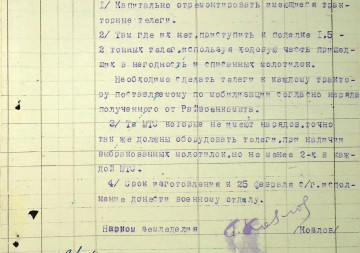 1/ Капитально отремонтировать имеющиеся трак-
торные телеги.
2/ Там где их нет, приступить к поделке 1.5 -
2 тонных телег, используя ходовую часть пришед-
ших в негодность и списанных молотилок.
Необходимо сделать телеги к каждому тракто-
ру поставляемому по мобилизации согласно наряда
полученного от Райвоенкомата.
3/ Те МТС которые не имеют нарядов, точно
так же должны оборудовать телеги, при наличии
выбракованных молотилок, но не менее 2-х в каж-
дой МТС.
4/ Срок изготовления к 25 февраля с/г. испол-
нение донести военному отделу.
Нарком земледелия /Козлов/